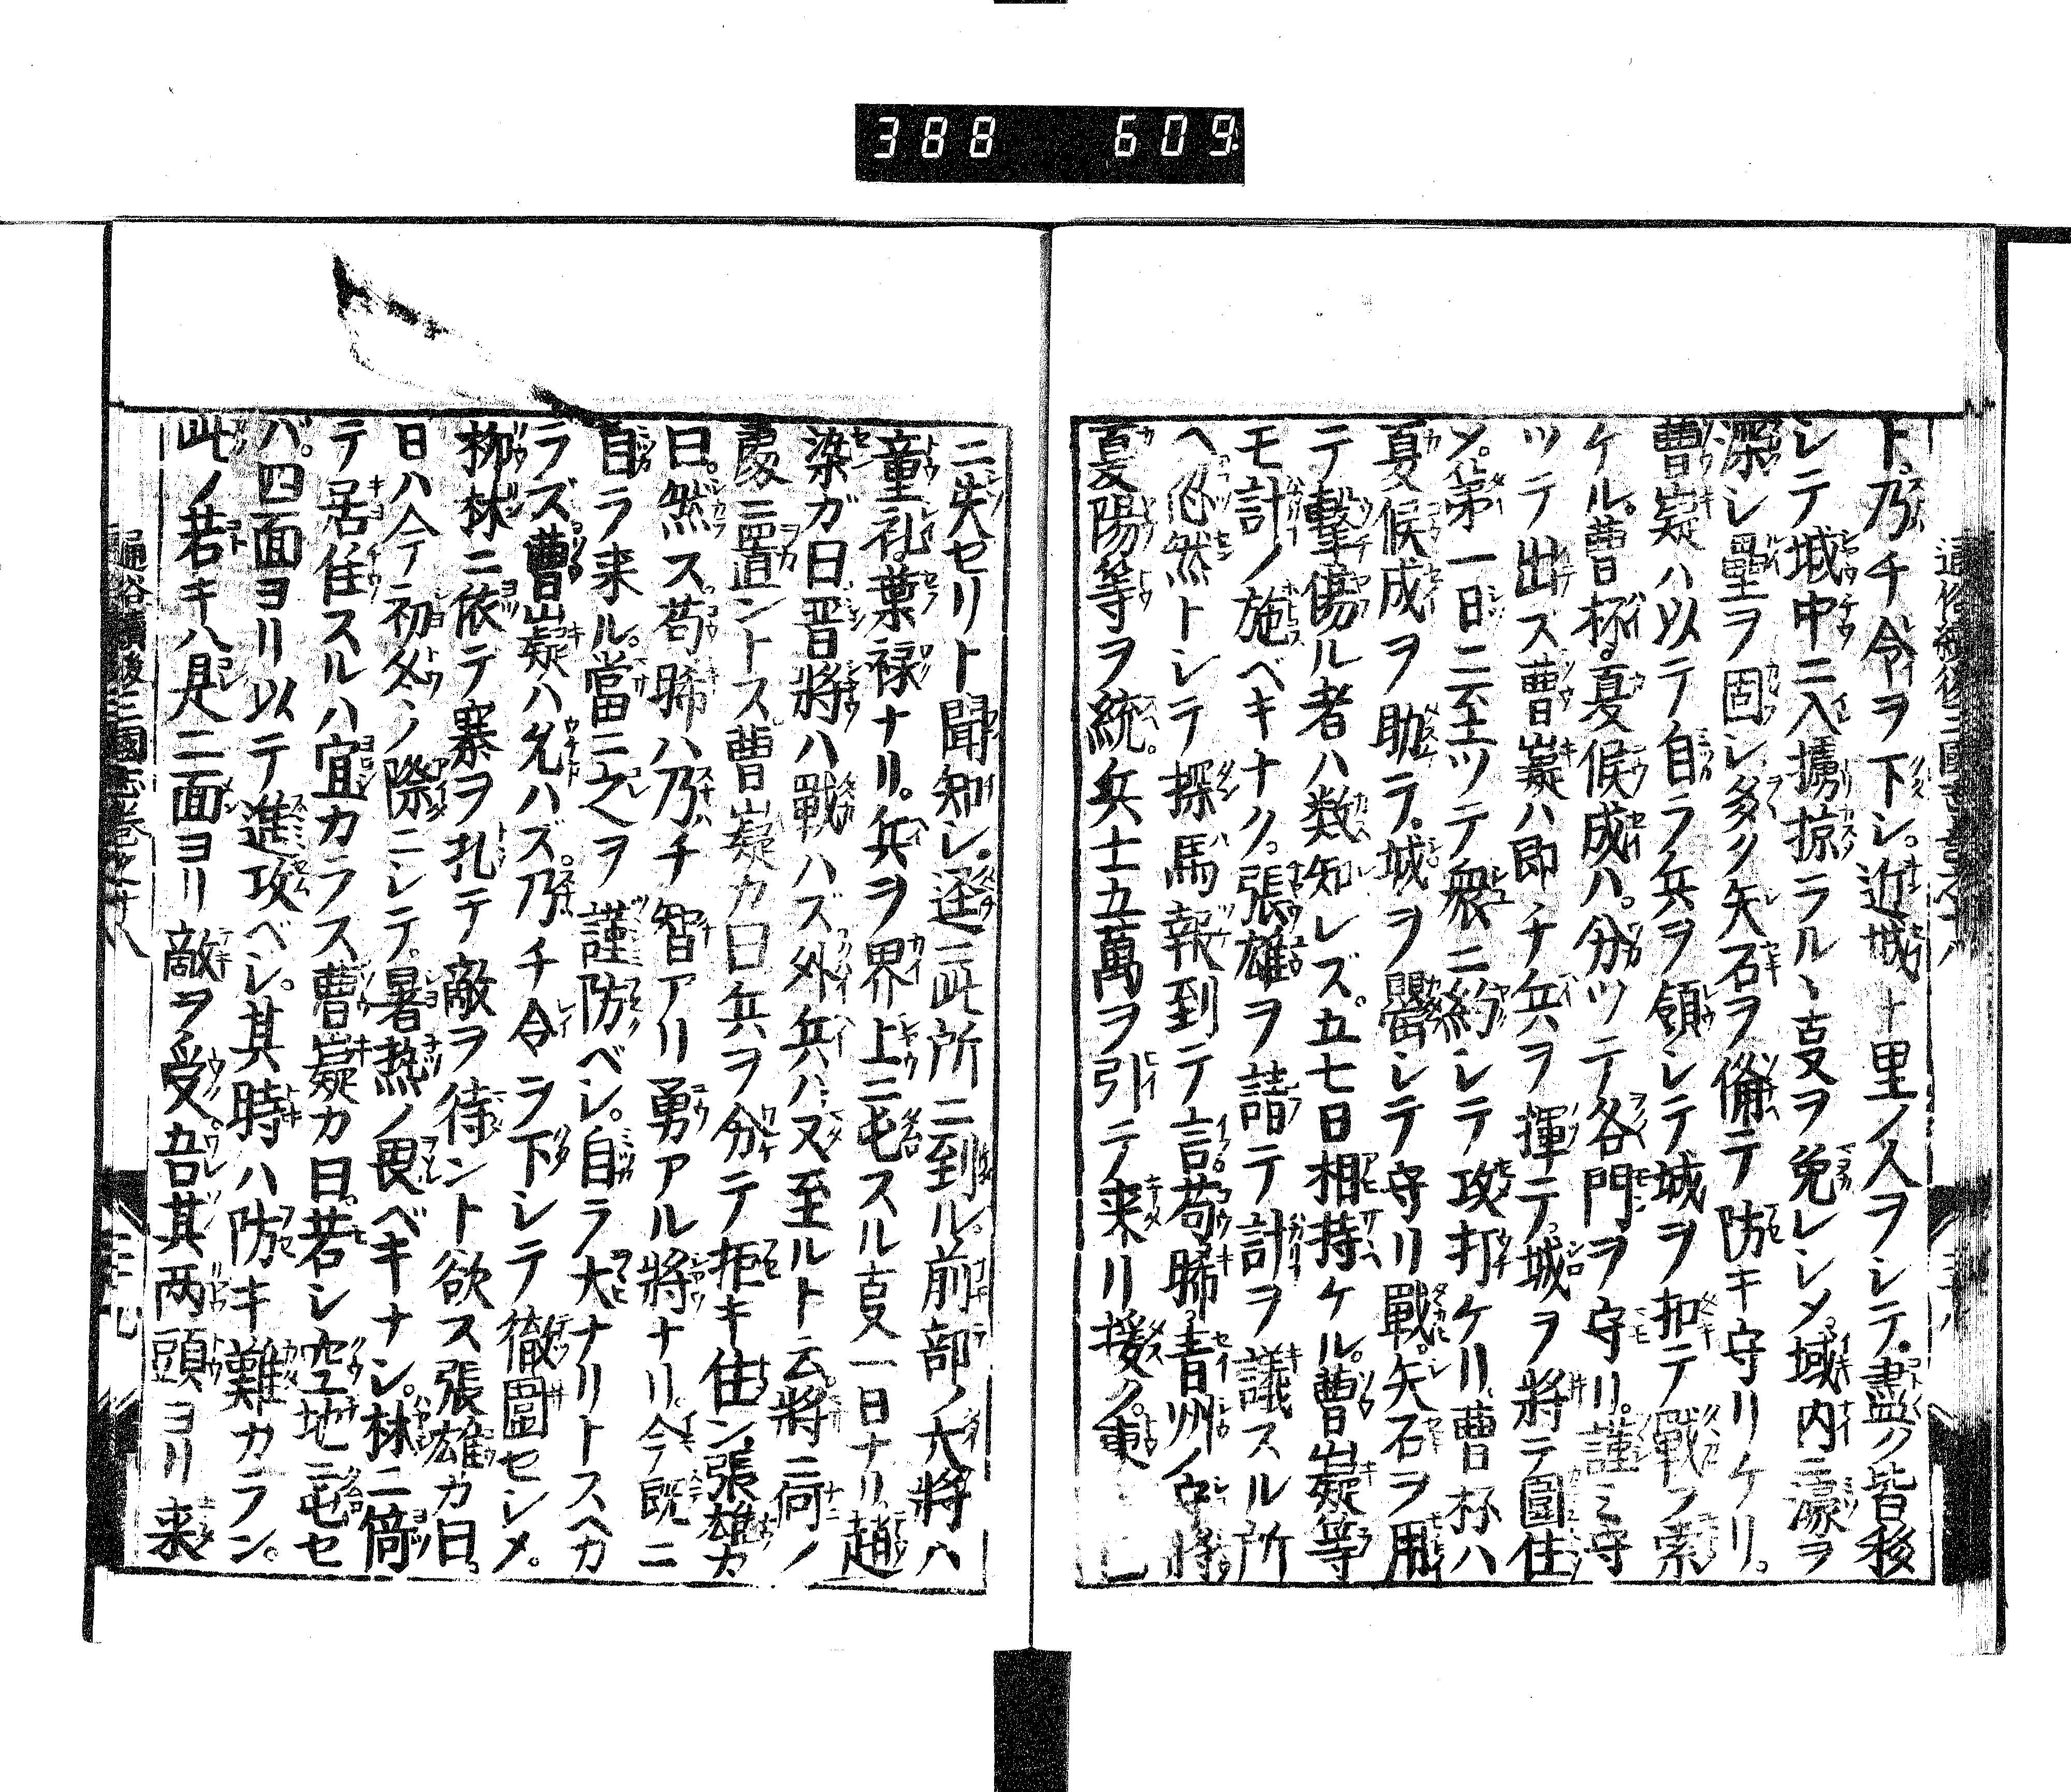 388 609
ト乃チ令ヲ下シ近城十里ノ人ヲシテ盡ク皆移
シテ城中ニ入擄掠ラルヽ叓ヲ免レシメ域内ニ濠ヲ
深シ壘ヲ固シ多ク矢石ヲ備テ防キ守リケリ。
曹嶷ハ以テ自ラ兵ヲ領シテ城ヲ扣テ戰ヲ索
ケル。曹杯。夏候成ハ。分ツテ各門ヲ守リ。謹ミ守
ツテ出ス曹嶷ハ即チ兵ヲ揮テ城ヲ將テ圍住
ン。第一日ニ至ツテ衆ニ約シテ攻打ケリ曹杯ハ
夏候成ヲ助テ。城ヲ嚴シテ守リ戰。矢石ヲ用
テ撃傷ル者ハ数知レズ。五七日相持ケル。曹嶷等
モ計ノ施ベキナク。張雄ヲ請テ計ヲ議スル所
ヘ忽然トシテ探馬報到テ言苟晞青州ノ守將
夏陽等ヲ統。兵士五萬ヲ引テ来リ援ク。東
ニ失セリト聞知シ。逕ニ此所ニ到ル。前部ノ大將ハ
童礼。葉禄ナリ。兵ヲ界上ニ屯スル叓一日ナリ。趙
染ガ曰晋將ハ戰ハズ外兵ハ又至ルト云。將ニ何ノ
處ニ置ントス曹嶷カ曰兵ヲ分テ拒キ住ン。張雄カ
曰。然ス苟晞ハ乃チ智アリ勇アル將ナリ。今既ニ
自ラ来ル。當ニ之ヲ謹防ベシ。自ラ大ナリトスヘカ
ラズ曹嶷ハ允ハズ。乃チ令ヲ下シテ徹圍セシメ。
柳林ニ依テ寨ヲ扎テ敵ヲ待ント欲ス張雄カ曰。
日ハ今テ初冬ノ際ニシテ。暑熱ノ畏ベキナシ。林ニ倚
テ居住スルハ宜カラス曹嶷カ曰。若シ空地ニ屯セ
バ。四面ヨリ以テ進攻ベシ。其時ハ防キ難カラン。
此ノ若キハ是二面ヨリ敵ヲ受。吾其両頭ヨリ来